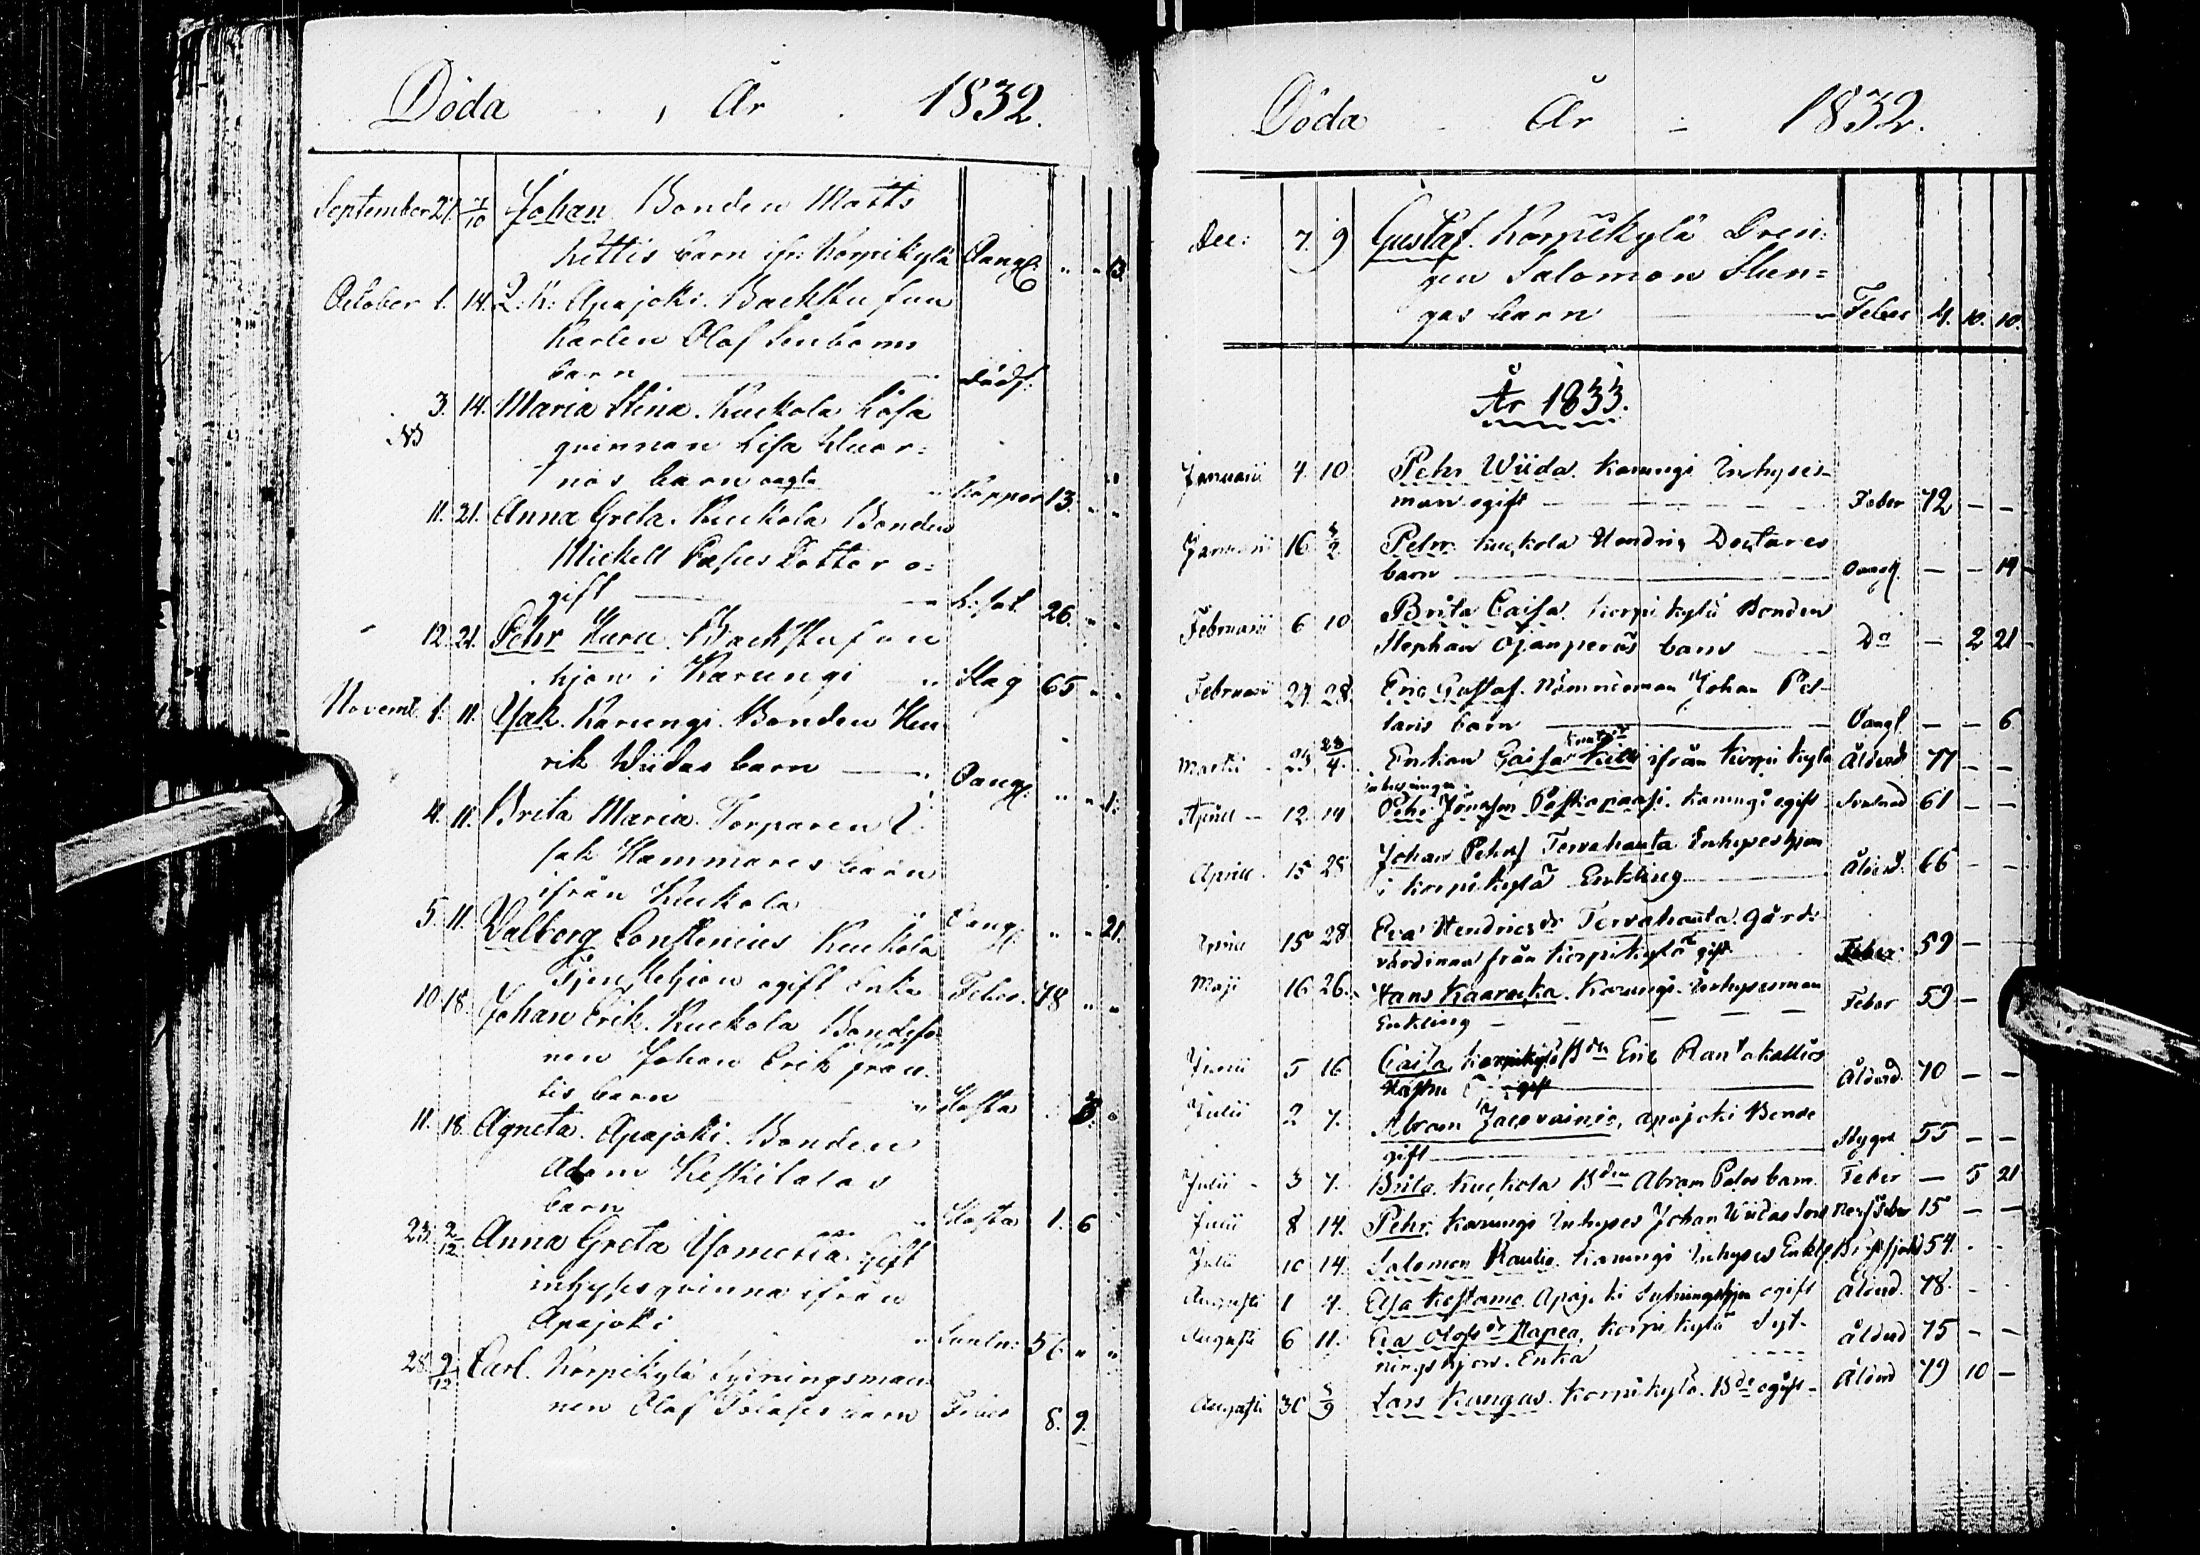 Döda År 1832.
September 27. 7/10 Johan Bonden Matts
Kittis barn ifr: Korpikylä Oangf: " " 13
October 1. 14. 2: K: Apajoki. Backstusun
karlen Olof barns
barn dödf:
3. 14. Maria Stina. Kuckola Lösa
NB
qvinnan Lisa
nos barn oagta " Koppor 13. " "
11. 21. Anna Greta. Kuckola Bonden
Michell Dotter o=
gift 26. " "
12. 21. Pehr Huru. Backstusun
hjon i Karungi " Slag 65 " "
Novemb. 1. 11. Isak. Karungi. Bonden Hen
rik Wiidas barn Oangf: " " 1.
4. 11. Brita Maria. Torparen I:
sak Hammares barn
ifrån Kuckola Oangf: " " 21.
5. 11. Valborg Constenius Kuckola
Tjenstehjon ogift Enka Feber. 48 " "
10. 18. Johan Erik. Kuckola Bondeso
nen Johan Erik
tis barn " Hosta
11. 18. Agneta. Apajoki. Bonden
Adam Keskitalos
barn " Hosta 1. 6
23. 2/12 Anna Greta gift
inhyses qvinna ifrån
Apajoki " 56 " "
28. 9/12 Carl. Korpikylä Sytningsman
nen Olof barn Feber 8. 9.
Döda År 1832.
Dec: 7. 9 Gustaf. Korpikylä Dren:
gen Salomon Stun=
gas barn " Feber 4. 10. 10.
År 1833.
Januarii 4 10 Pehr Wiida. Karungi Inhyses-
man ogift Feber 72 — —
Januarii 16 3/2 Pehr Kuckola Hendric
barn Oangf. — — 14
Februarii 6 10 Brita Caisa. Korpikylä Bonden
Stephan Ojanperäs barn Do — 2 21
Februarii 24 28 Eric Gustaf. Nämndeman Johan Pel-
taris barn Oangf — — 6
Martii 23 28/4 Enkan Caisa ifrån Korpikylä Ålderd 77 — —
Aprill 12 14 Pehr Karungi ogift 61 — —
Aprill 15 28 Johan Pehrs. Tervahauta Inhyseshjon
i Korpikylä Enkling Ålderd. 66 — —
Aprill 15 28 Eva Hendricsdr Tervahauta. Gård:
värdinna från Korpikylä gift Feber. 59 —
Maji 16 26. Hans Kaaracka. Karungi. Inhysesman
Enkling Feber 59 —
Junii 5 16 Caisa Korpikylä Bden Eric Rantakallios
Hustru gift Ålderd. 70 — —
Julii 2 7. Abram Jacovainio, Apajoki Bonde
gift 55 — —
Julii 3 7. Brita. Kuckola Bden Abram Palos barn. Feber — 5 21
Julii 8 14. Pehr. Karungi Inhyses Johan Wiidas Son 15 — —
Julii 10 14. Salomon Rautio. Karungi Inhyses Enkl. 54. - -
Augusti 1 4. Elsa Kostamo. Apajoki Sytningshjon ogift Ålderd. 78. -
Augusti 6 11. Eva Olofsdr Hapea. Korpikylä Syt-
ningshjon. Enka Ålderd 75 — —
Augusti 30 8/9 Lars Kangas. Korpikylä. Bde ogift - Ålderd 79 10 —